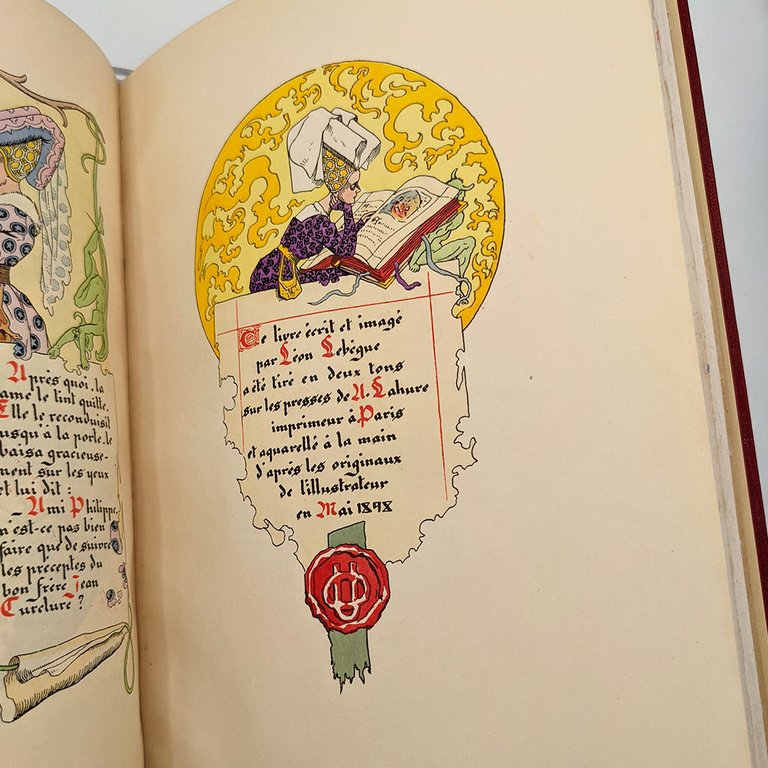 Après quoi, la
ame le tint quitte.
Elle le reconduisit
usqu'à la porte, le
baisa gracieuse-
ment sur les yeux
et lui dit :
— Ami Philippe,
n'est-ce pas bien
faire que de suivre
les préceptes du
bon frère Jean
Curelure ?
Ce livre écrit et imagé
par Léon Lebègue
a été tiré en deux tons
sur les presses de A. Lahure
imprimeur à Paris
et aquarellé à la main
d'après les originaux
de l'illustrateur
en Mai 1898